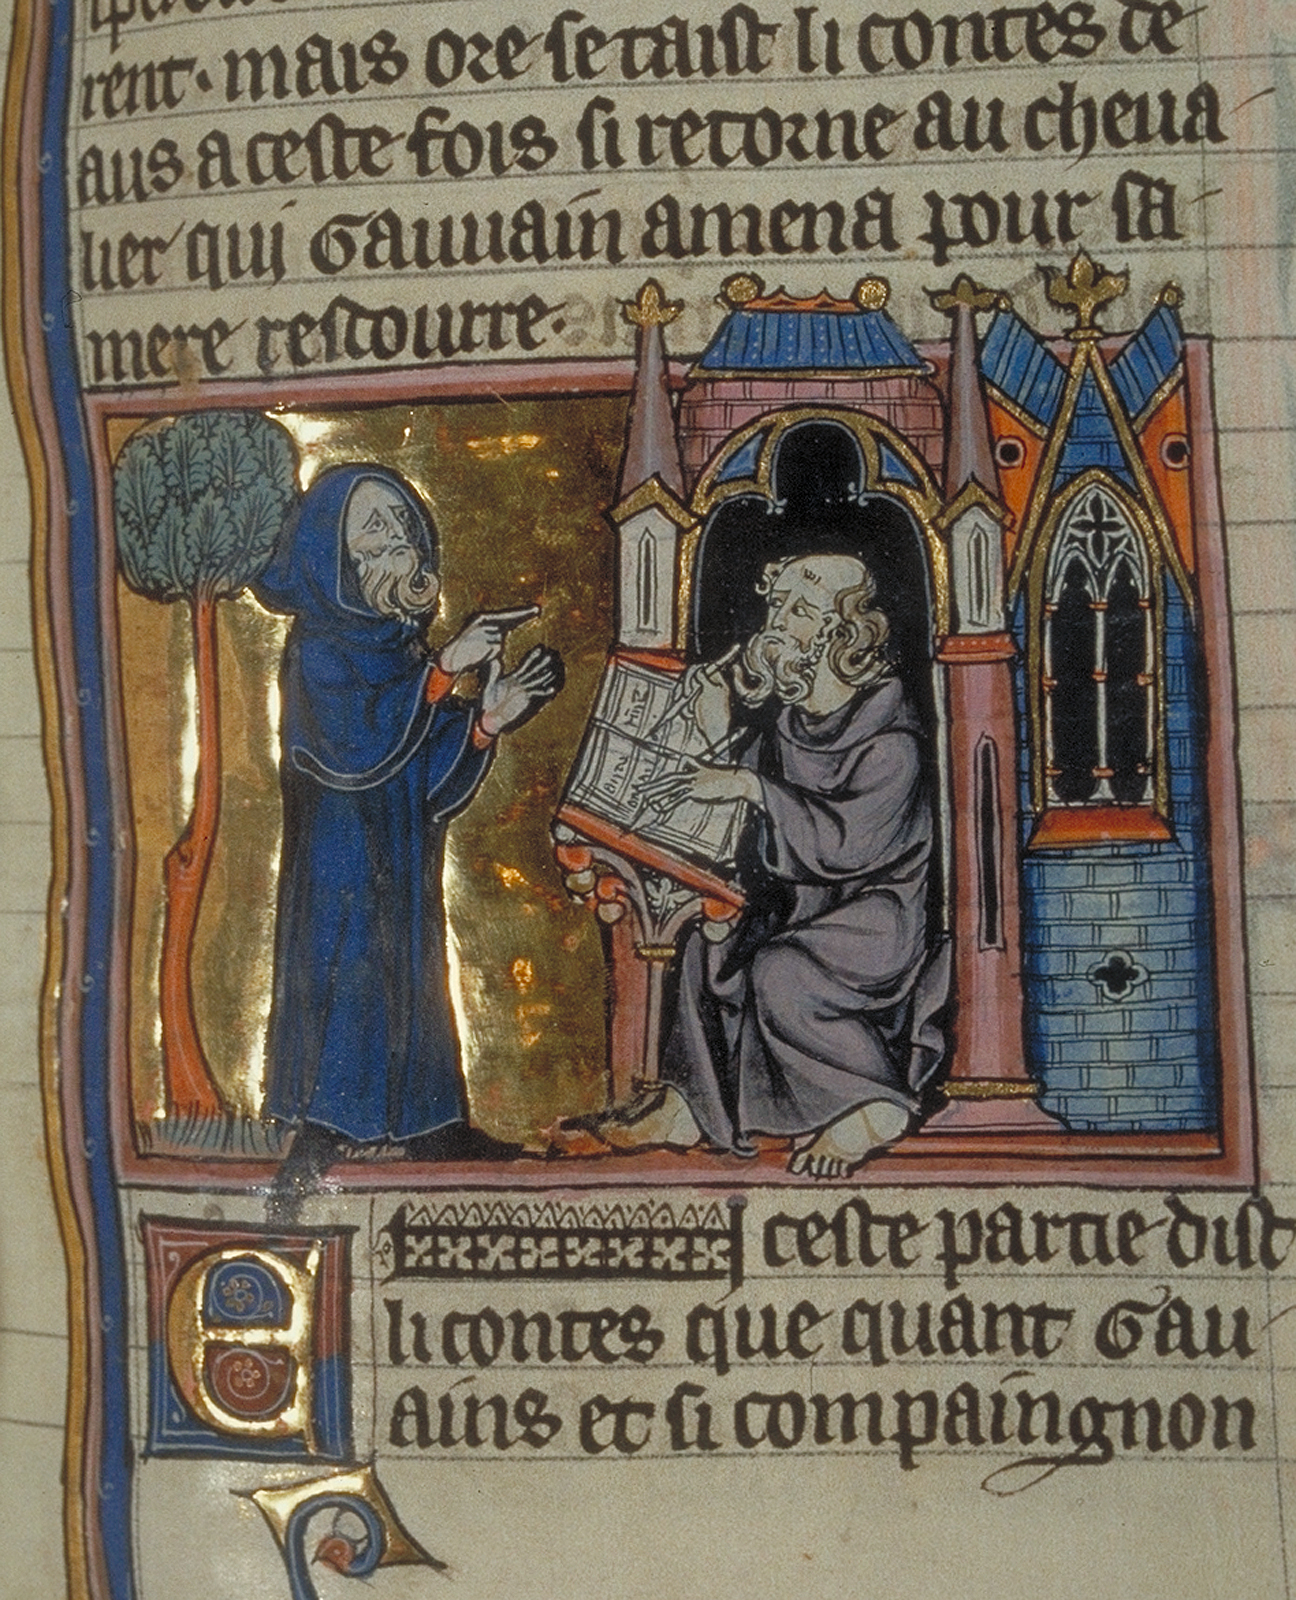 rent. mais ore se taist li contes de
aus a ceste fois si retorne au cheua
lier qui Gauuain amena pour sa
mere rescourre.
E ceste partie dist
li contes que quant Gau
ains et si compaingnon